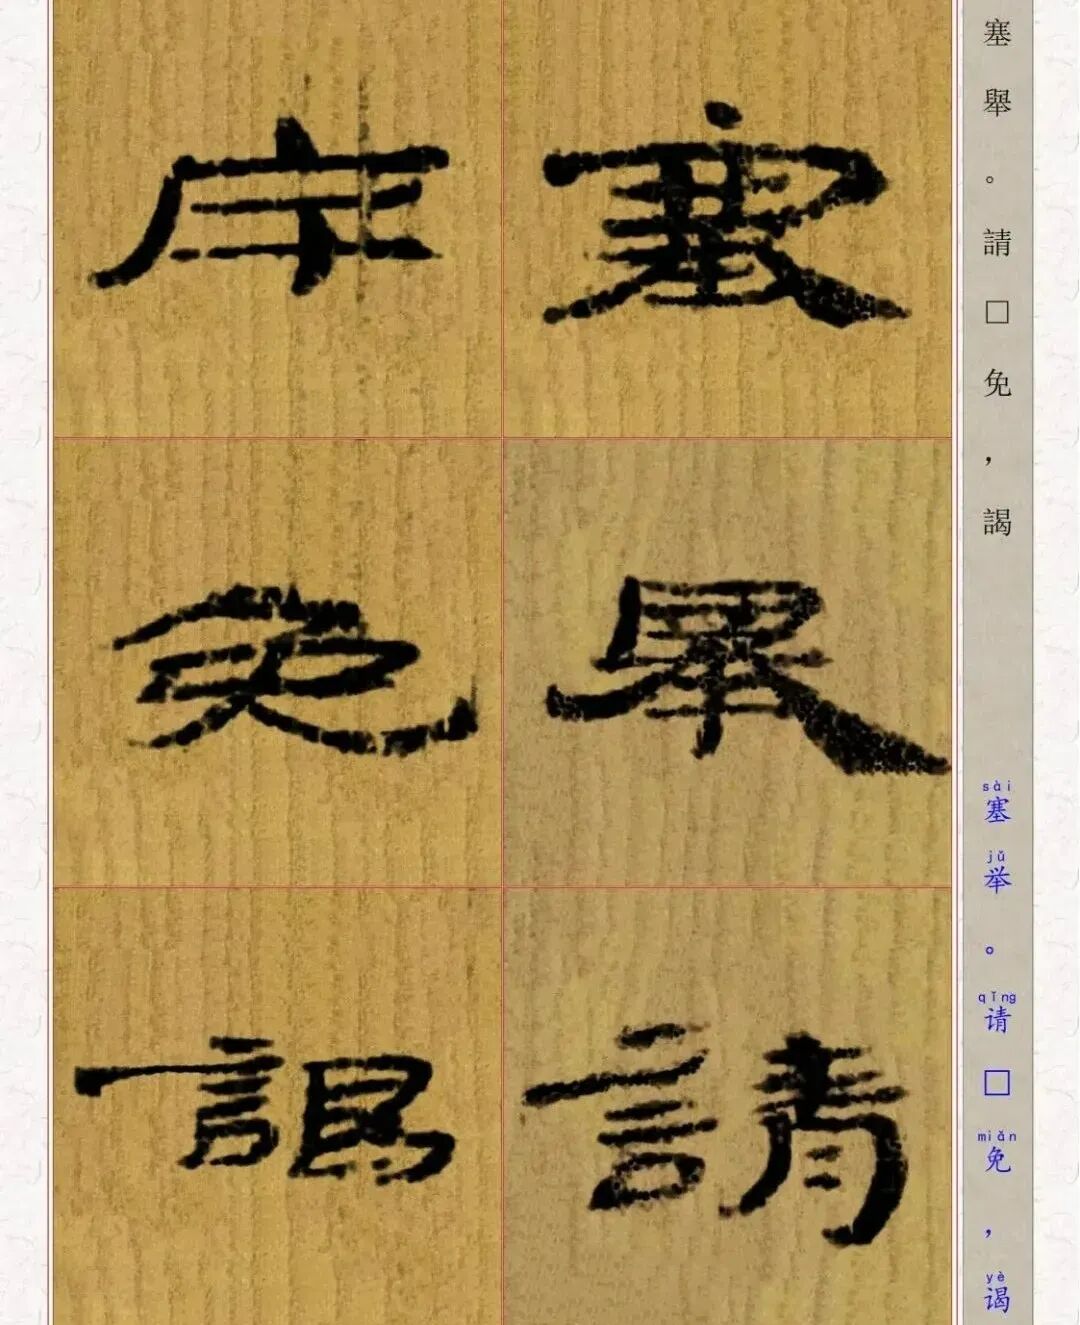 塞舉請
□免謁
塞舉。請□免，謁
sài jǔ qǐng miǎn yè
塞举。请□免，谒